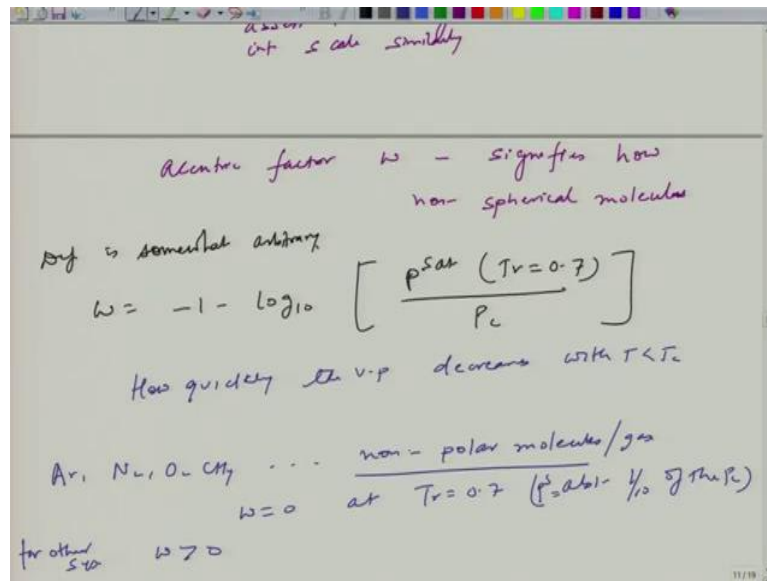 int scale similarly
acentric factor ω - signifies how
non-spherical molecules
Def is somewhat arbitrary
ω = -1 - log10 [ Psat (Tr = 0.7) / Pc ]
How quickly the v.p decreases with T < Tc
Ar, N2, O2 CH4 ... non-polar molecules/gas
ω = 0 at Tr = 0.7 (Ps = abt 1/10 of the Pc)
for other sys ω > 0
11/19